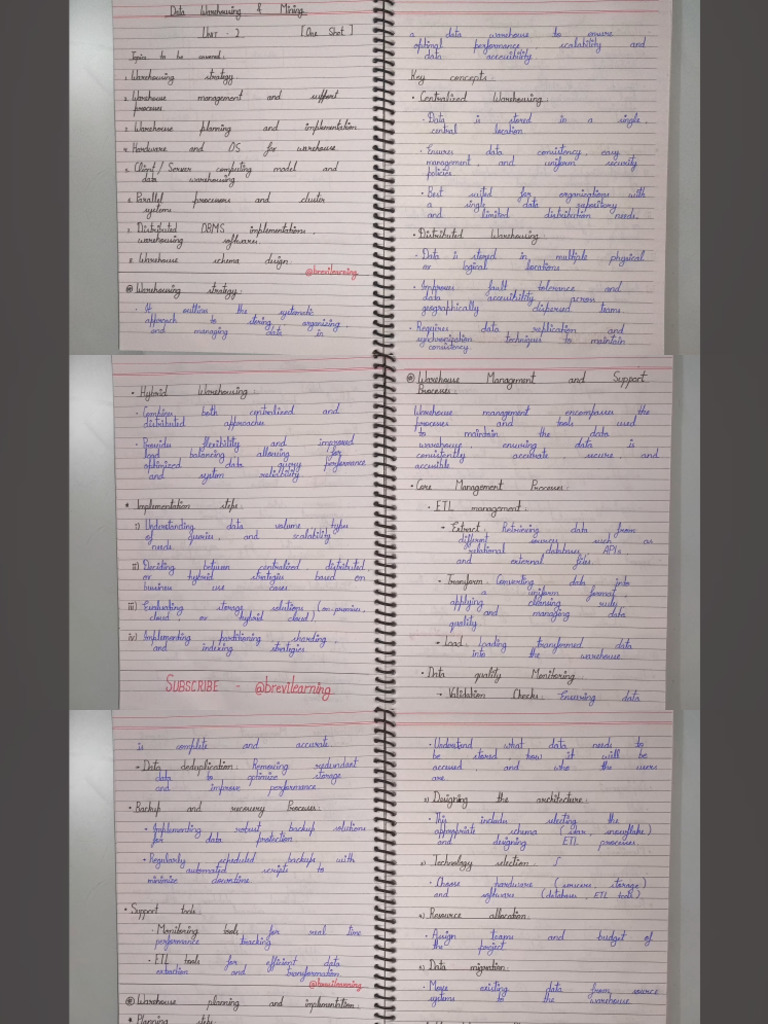 Data Warehousing & Mining
Unit - 2 [One Shot]
Topics to be covered:
1. Warehousing strategy
2. Warehouse management and support
processes
3. Warehouse planning and implementation
4. Hardware and OS for warehouse
5. Client/Server computing model and
data warehousing
6. Parallel processors and cluster
systems
7. Distributed DBMS implementations,
warehousing software
8. Warehouse schema design
@brevilearning
Warehousing strategy:
• It outlines the systematic
approach to storing, organizing,
and managing data in
a data warehouse to ensure
optimal performance, scalability and
data accessibility.
Key concepts:
• Centralized Warehousing:
• Data is stored in a single,
central location
• Ensures data consistency, easy
management, and uniform security
policies
• Best suited for organizations with
a single data repository
and limited distribution needs.
• Distributed Warehousing
• Data is stored in multiple physical
or logical locations
• Improves fault tolerance and
data accessibility across
geographically dispersed teams.
• Requires data replication and
synchronization techniques to maintain
consistency.
• Hybrid Warehousing:
• Combines both centralized and
distributed approaches
• Provides flexibility and improved
load balancing allowing for
optimized data query performance
and system reliability
* Implementation steps:
i) Understanding data volume, types
of queries, and scalability
needs
ii) Deciding between centralized, distributed,
or hybrid strategies based on
business use cases
iii) Evaluating storage solutions (on-premises,
cloud, or hybrid cloud)
iv) Implementing partitioning, sharding,
and indexing strategies
SUBSCRIBE - @brevilearning
Warehouse Management and Support
Processes:
Warehouse management encompasses the
processes and tools used
to maintain the data
warehouse, ensuring data is
consistently accurate, secure, and
accessible
• Core Management Processes:
• ETL management:
→ Extract: Retrieving data from
different sources such as
relational databases, APIs
and external files.
→ Transform: Converting data into
a uniform format,
applying cleansing rules
and managing data
quality
→ Load: Loading transformed data
into the warehouse
• Data quality Monitoring:
→ Validation Checks: Ensuring data
is complete and accurate
→ Data deduplication: Removing redundant
data to optimize storage
and improve performance
• Backup and recovery Processes:
• Implementing robust backup solutions
for data protection
• Regularly scheduled backups with
automated scripts to
minimize downtime
• Support tools:
• Monitoring tools for real time
performance tracking
• ETL tools for efficient data
extraction and transformation
@brevilearning
Warehouse planning and implementation:
* Planning steps:
• Understand what data needs to
be stored, how it will be
accessed, and who the users
are
Designing the architecture:
• This includes selecting the
appropriate schema (star, snowflake)
and designing ETL processes
Technology selection:
• Choose hardware (servers, storage)
and software (database, ETL tools)
Resource allocation:
• Assign teams and budget of
the project
Data migration:
• Move existing data from source
systems to the warehouse